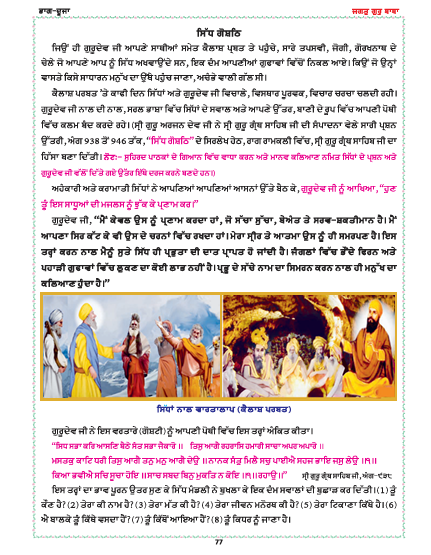 ਭਾਗ-ਦੂਜਾ
ਜਗਤੁ ਗੁਰੂ ਬਾਬਾ
ਸਿੱਧ ਗੋਸ਼ਟਿ
ਜਿਉਂ ਹੀ ਗੁਰੂਦੇਵ ਜੀ ਆਪਣੇ ਸਾਥੀਆਂ ਸਮੇਤ ਕੈਲਾਸ਼ ਪ੍ਰਬਤ ਤੇ ਪਹੁੰਚੇ, ਸਾਰੇ ਤਪਸਵੀ, ਜੋਗੀ, ਗੋਰਖਨਾਥ ਦੇ
ਚੇਲੇ ਜੋ ਆਪਣੇ ਆਪ ਨੂੰ ਸਿੱਧ ਅਖਵਾਉਂਦੇ ਸਨ, ਇਕ ਦੰਮ ਆਪਣੀਆਂ ਗੁਫਾਵਾਂ ਵਿੱਚੋਂ ਨਿਕਲ ਆਏ। ਕਿਉਂ ਜੋ ਉਨ੍ਹਾਂ
ਵਾਸਤੇ ਕਿਸੇ ਸਾਧਾਰਨ ਮਨੁੱਖ ਦਾ ਉੱਥੇ ਪਹੁੰਚ ਜਾਣਾ, ਅਚੰਭੇ ਵਾਲੀ ਗੱਲ ਸੀ।
ਕੈਲਾਸ਼ ਪਰਬਤ ’ਤੇ ਕਾਫੀ ਦਿਨ ਸਿੱਧਾਂ ਅਤੇ ਗੁਰੂਦੇਵ ਜੀ ਵਿਚਾਲੇ, ਵਿਸਥਾਰ ਪੂਰਵਕ, ਵਿਚਾਰ ਚਰਚਾ ਚਲਦੀ ਰਹੀ।
ਗੁਰੂਦੇਵ ਜੀ ਨਾਲ ਦੀ ਨਾਲ, ਸਰਲ ਭਾਸ਼ਾ ਵਿੱਚ ਸਿੱਧਾਂ ਦੇ ਸਵਾਲ ਅਤੇ ਆਪਣੇ ਉੱਤਰ, ਬਾਣੀ ਦੇ ਰੂਪ ਵਿੱਚ ਆਪਣੀ ਪੋਥੀ
ਵਿੱਚ ਕਲਮ ਬੰਦ ਕਰਦੇ ਰਹੇ। (ਸ੍ਰੀ ਗੁਰੂ ਅਰਜਨ ਦੇਵ ਜੀ ਨੇ ਸ੍ਰੀ ਗੁਰੂ ਗ੍ਰੰਥ ਸਾਹਿਬ ਜੀ ਦੀ ਸੰਪਾਦਨਾ ਵੇਲੇ ਸਾਰੀ ਪ੍ਰਸ਼ਨ
ਉੱਤਰੀ, ਅੰਗ 938 ਤੋਂ 946 ਤੱਕ, “ਸਿੱਧ ਗੋਸ਼ਟਿ” ਦੇ ਸਿਰਲੇਖ ਹੇਠ, ਰਾਗ ਰਾਮਕਲੀ ਵਿੱਚ, ਸ੍ਰੀ ਗੁਰੂ ਗ੍ਰੰਥ ਸਾਹਿਬ ਜੀ ਦਾ
ਹਿੱਸਾ ਬਣਾ ਦਿੱਤੀ। ਨੋਟ:- ਸੁਹਿਰਦ ਪਾਠਕਾਂ ਦੇ ਗਿਆਨ ਵਿੱਚ ਵਾਧਾ ਕਰਨ ਅਤੇ ਮਾਨਵ ਕਲਿਆਣ ਨਮਿਤ ਸਿੱਧਾਂ ਦੇ ਪ੍ਰਸ਼ਨ ਅਤੇ
ਗੁਰੂਦੇਵ ਜੀ ਵੱਲੋਂ ਦਿੱਤੇ ਗਏ ਉੱਤਰ ਇੱਥੇ ਦਰਜ ਕਰਨੇ ਬਣਦੇ ਹਨ।)
ਅਹੰਕਾਰੀ ਅਤੇ ਕਰਾਮਾਤੀ ਸਿੱਧਾਂ ਨੇ ਆਪਣਿਆਂ ਆਪਣਿਆਂ ਆਸਨਾਂ ਉੱਤੇ ਬੈਠ ਕੇ, ਗੁਰੂਦੇਵ ਜੀ ਨੂੰ ਆਖਿਆ, “ਹੁਣ
ਤੂੰ ਇਸ ਸਾਧੂਆਂ ਦੀ ਮਜਲਸ ਨੂੰ ਝੁੱਕ ਕੇ ਪ੍ਰਣਾਮ ਕਰ।”
ਗੁਰੂਦੇਵ ਜੀ, “ਮੈਂ ਕੇਵਲ ਉਸ ਨੂੰ ਪ੍ਰਣਾਮ ਕਰਦਾ ਹਾਂ, ਜੋ ਸੱਚਾ ਸੁੱਚਾ, ਬੇਅੰਤ ਤੇ ਸਰਵ-ਸ਼ਕਤੀਮਾਨ ਹੈ। ਮੈਂ
ਆਪਣਾ ਸਿਰ ਕੱਟ ਕੇ ਵੀ ਉਸ ਦੇ ਚਰਨਾਂ ਵਿੱਚ ਰਖਦਾ ਹਾਂ। ਮੇਰਾ ਸ੍ਰੀਰ ਤੇ ਆਤਮਾ ਉਸ ਨੂੰ ਹੀ ਸਮਰਪਣ ਹੈ। ਇਸ
ਤਰ੍ਹਾਂ ਕਰਨ ਨਾਲ ਮੈਨੂੰ ਸੁਤੇ ਸਿੱਧ ਹੀ ਪ੍ਰਭੁਤਾ ਦੀ ਦਾਤ ਪ੍ਰਾਪਤ ਹੋ ਜਾਂਦੀ ਹੈ। ਜੰਗਲਾਂ ਵਿੱਚ ਭੌਂਦੇ ਫਿਰਨ ਅਤੇ
ਪਹਾੜੀ ਗੁਫਾਵਾਂ ਵਿੱਚ ਲੁਕਣ ਦਾ ਕੋਈ ਲਾਭ ਨਹੀਂ ਹੈ। ਪ੍ਰਭੂ ਦੇ ਸੱਚੇ ਨਾਮ ਦਾ ਸਿਮਰਨ ਕਰਨ ਨਾਲ ਹੀ ਮਨੁੱਖ ਦਾ
ਕਲਿਆਣ ਹੁੰਦਾ ਹੈ।”
ਸਿੱਧਾਂ ਨਾਲ ਵਾਰਤਾਲਾਪ (ਕੈਲਾਸ਼ ਪਰਬਤ)
ਗੁਰੂਦੇਵ ਜੀ ਨੇ ਇਸ ਵਰਤਾਰੇ (ਗੋਸ਼ਟੀ) ਨੂੰ ਆਪਣੀ ਪੋਥੀ ਵਿੱਚ ਇਸ ਤਰ੍ਹਾਂ ਅੰਕਿਤ ਕੀਤਾ।
“ਸਿਧ ਸਭਾ ਕਰਿ ਆਸਣਿ ਬੈਠੇ ਸੰਤ ਸਭਾ ਜੈਕਾਰੋ ॥ ਤਿਸੁ ਆਗੈ ਰਹਰਾਸਿ ਹਮਾਰੀ ਸਾਚਾ ਅਪਰ ਅਪਾਰੋ ॥
ਮਸਤਕੁ ਕਾਟਿ ਧਰੀ ਤਿਸੁ ਆਗੈ ਤਨੁ ਮਨੁ ਆਗੈ ਦੇਉ ॥ ਨਾਨਕ ਸੰਤੁ ਮਿਲੈ ਸਚੁ ਪਾਈਐ ਸਹਜ ਭਾਇ ਜਸੁ ਲੇਉ ॥੧॥
ਕਿਆ ਭਵੀਐ ਸਚਿ ਸੂਚਾ ਹੋਇ ॥ ਸਾਚ ਸਬਦ ਬਿਨੁ ਮੁਕਤਿ ਨ ਕੋਇ ॥੧॥ਰਹਾਉ॥” ਸ੍ਰੀ ਗੁਰੂ ਗ੍ਰੰਥ ਸਾਹਿਬ ਜੀ, ਅੰਗ-੯੩੮
ਇਸ ਤਰ੍ਹਾਂ ਦਾ ਭਾਵ ਪੂਰਨ ਉਤਰ ਸੁਣ ਕੇ ਸਿੱਧ ਮੰਡਲੀ ਨੇ ਬੁਖਲਾ ਕੇ ਇਕ ਦੰਮ ਸਵਾਲਾਂ ਦੀ ਬੁਛਾੜ ਕਰ ਦਿੱਤੀ। (1) ਤੂੰ
ਕੌਣ ਹੈ? (2) ਤੇਰਾ ਕੀ ਨਾਮ ਹੈ? (3) ਤੇਰਾ ਮੱਤ ਕੀ ਹੈ? (4) ਤੇਰਾ ਜੀਵਨ ਮਨੋਰਥ ਕੀ ਹੈ? (5) ਤੇਰਾ ਟਿਕਾਣਾ ਕਿੱਥੇ ਹੈ। (6)
ਐ ਬਾਲਕੇ ਤੂੰ ਕਿੱਥੇ ਵਸਦਾ ਹੈਂ? (7) ਤੂੰ ਕਿੱਥੋਂ ਆਇਆ ਹੈਂ? (8) ਤੂੰ ਕਿਧਰ ਨੂੰ ਜਾਣਾ ਹੈ।
77